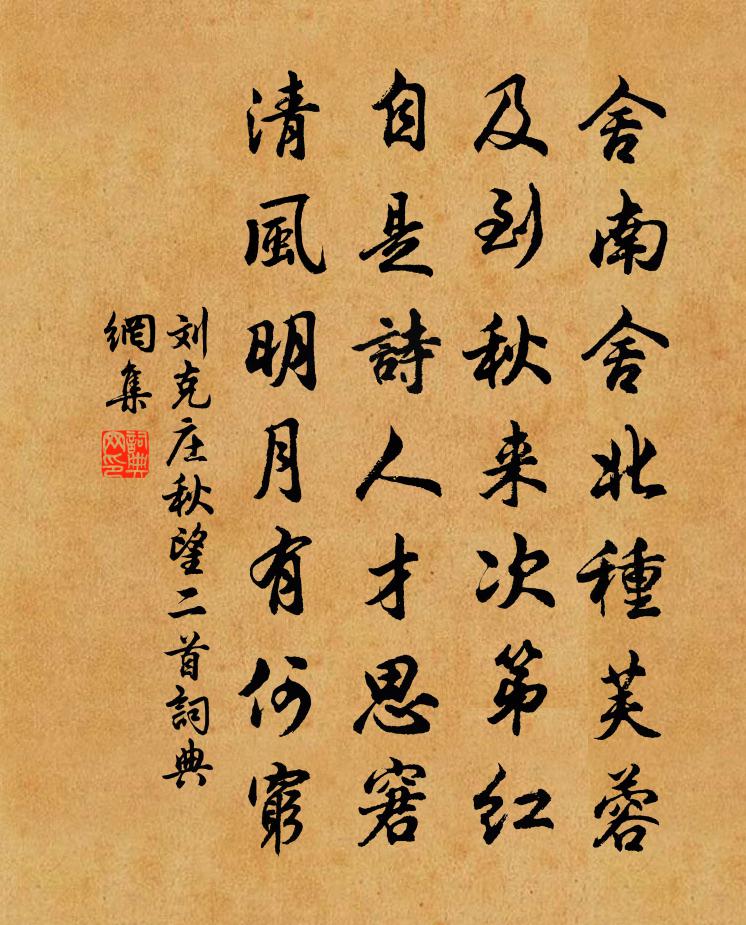 舍南舍北種芙蓉
及到秋来次第红
自是詩人才思窘
清風明月有何窮
刘克庄秋望二首詞典
網集
詞典
网印